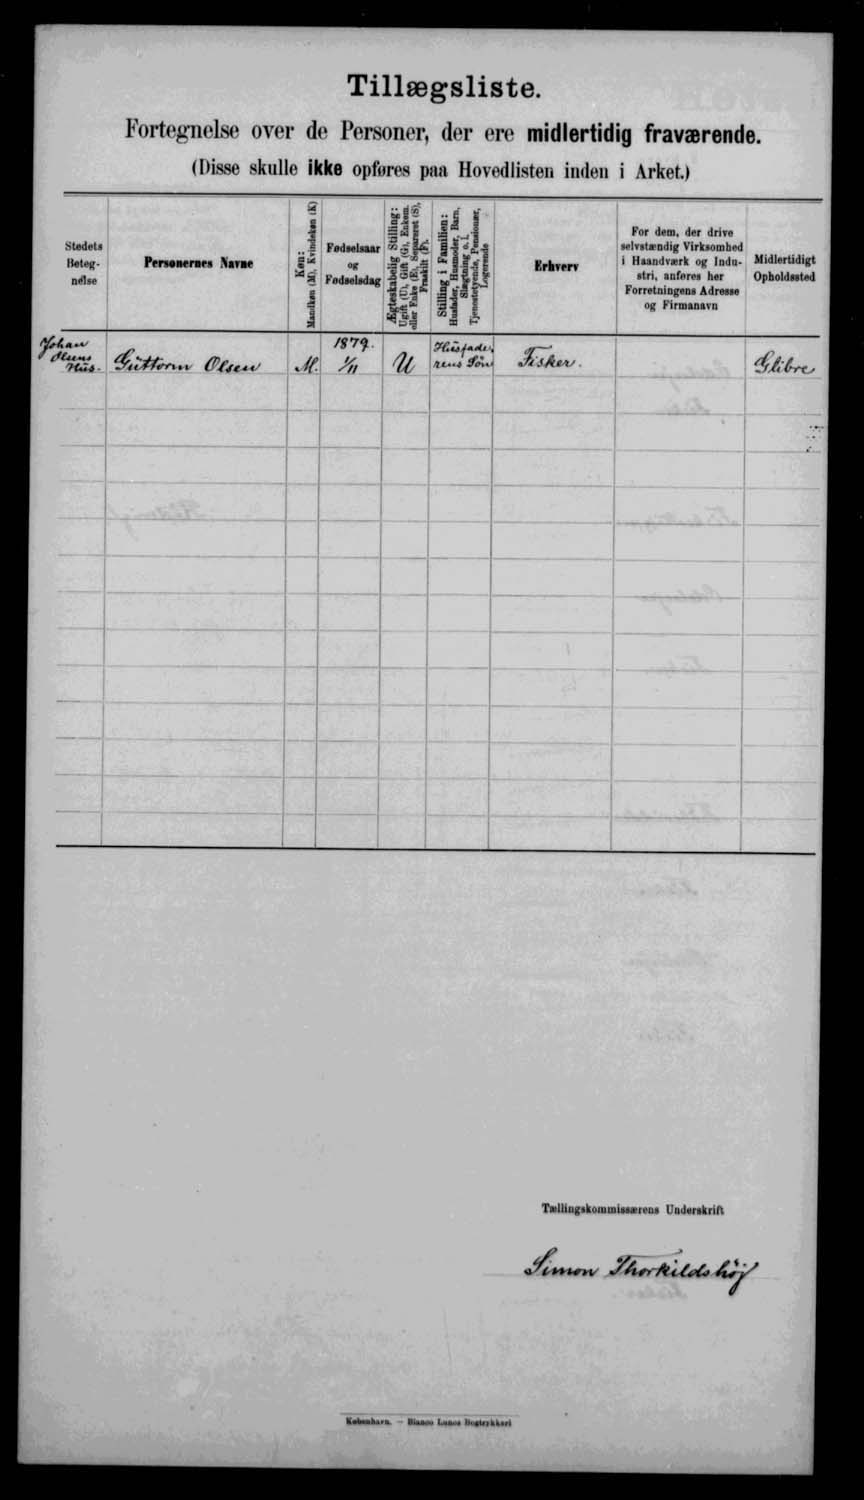 Tillægsliste.
Fortegnelse over de Personer, der ere midlertidig fraværende.
(Disse skulle ikke opføres paa Hovedlisten inden i Arket.)
Stedets Beteg-nelse
Personernes Navne
Køn:
Mandkøn (M), Kvindekøn (K)
Fødselsaar
og
Fødselsdag
Ægteskabelig Stilling:
Ugift (U), Gift (G), Enkem.
eller Enke (E), Separeret (S),
Fraskilt (F).
Stilling i Familien:
Husfader, Husmoder, Barn,
Slægtning o. l.
Tjenestetyende, Pensionær,
Logerende
Erhverv
For dem, der drive
selvstændig Virksomhed
i Haandværk og Indu-
stri, anføres her
Forretningens Adresse
og Firmanavn
Midlertidigt
Opholdssted
Johan
Olsens
Hus.
Guttorm Olsen
M.
1879.
1/11
U
Husfade,
rens Søn
Fisker.
Glibre
Tællingskommissærens Underskrift
Simon Thorkildshøj
København. — Bianco Lunos Bogtrykkeri